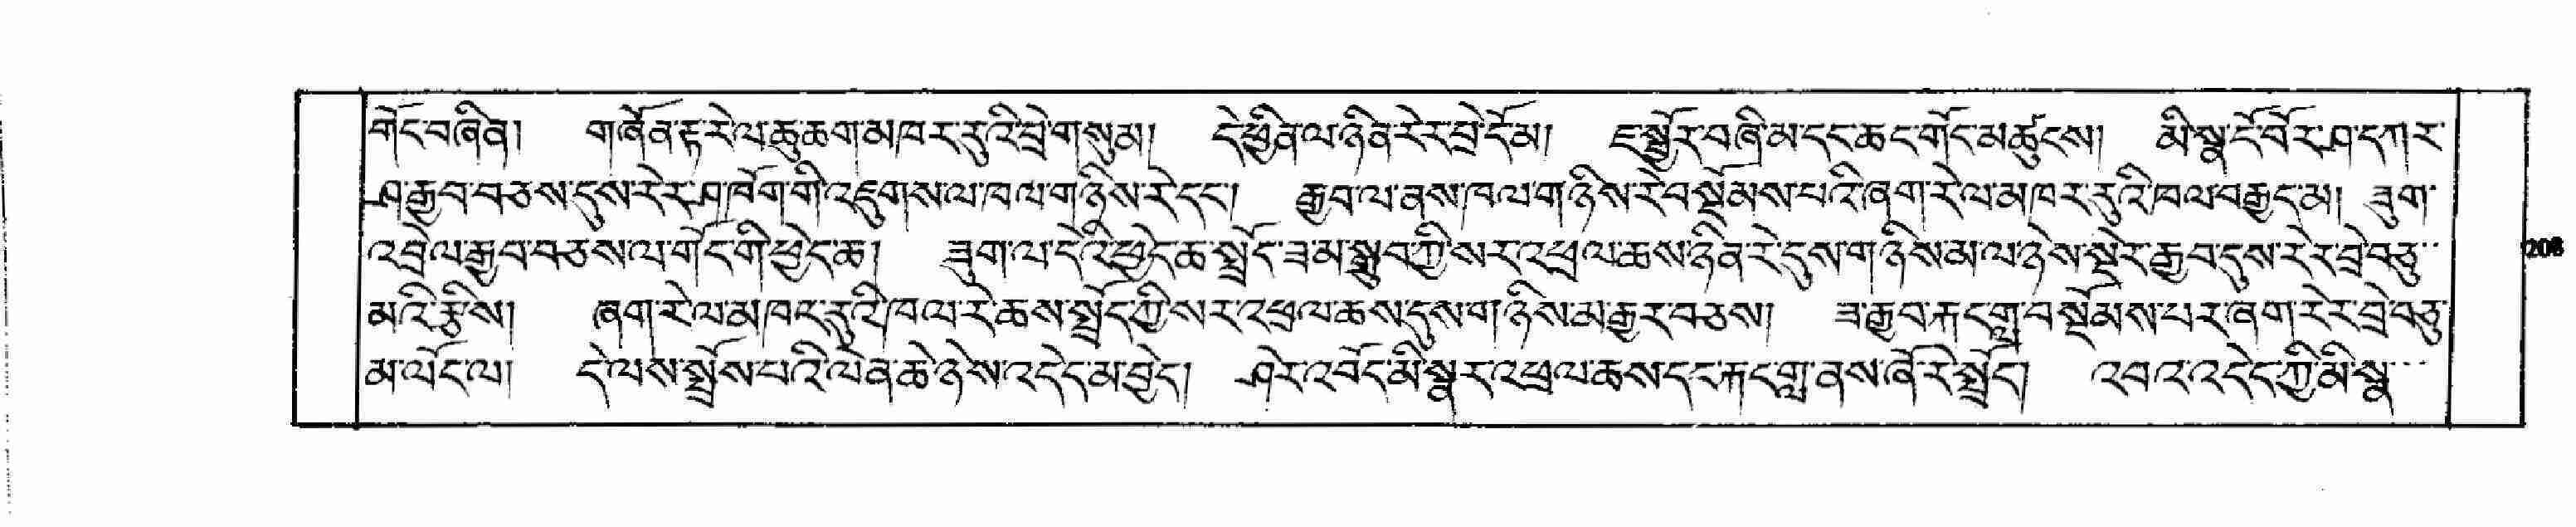 གོང་བཞིན། གཞོན་རྟ་རེ་ལ་ཆུ་ཆག་མཁར་རུའི་བྲེ་གསུམ། དེ་ཕྱིན་ལ་ཉིན་རེར་བྲེ་དོམ། ཇ་སྦྱོར་བཞི་མ་དང་ཆང་གོང་མཚུངས། མི་སྣ་ངོ་བོར་ཤ་དཀར་
ཤ་རྒྱབ་བཅས་དུས་རེར་ཤ་ཁོག་གི་འཇུགས་ལ་ཁལ་གཉིས་རེ་དང་། རྒྱབ་ལ་ནས་ཁལ་གཉིས་རེ་བསྡོམས་པའི་ཞག་རེ་ལ་མཁར་རུའི་ཁལ་བརྒྱད་མ། ཟུག་
འབྲེལ་རྒྱབ་བཅས་ལ་གོང་གི་ཕྱེད་ཆ། ཟུག་ལ་དེའི་ཕྱེད་ཆ་སྤྲོད་ཟམ་སྒྲུབ་ཀྱི་སར་འཕྲལ་ཆས་ཉིན་རེ་དུས་གཉིས་མ་ལ་ཉེས་སྡེར་རྒྱབ་དུས་རེར་བྲེ་བཅུ་
མའི་རྩིས། ཞག་རེ་ལ་མཁར་རུའི་ཁལ་རེ་ཆས་སྤྲོད་ཀྱི་སར་འཕྲལ་ཆས་དུས་གཉིས་མ་རྒྱར་བཅས། ཟ་རྒྱབ་རྐང་གླ་བསྡོམས་པར་ཞག་རེར་བྲེ་བཅུ་
མ་ལོང་ལ། དེ་ལས་སྤྲོས་པའི་ལེན་ཆེ་ཉེས་འདེད་མ་བྱེད། ཤེར་འབོད་མི་སྣར་འཕྲལ་ཆས་དང་རྐང་གླ་ནས་ཞོ་རེ་སྤྲོད། འབའ་འདེད་ཀྱི་མི་སྣ་
208